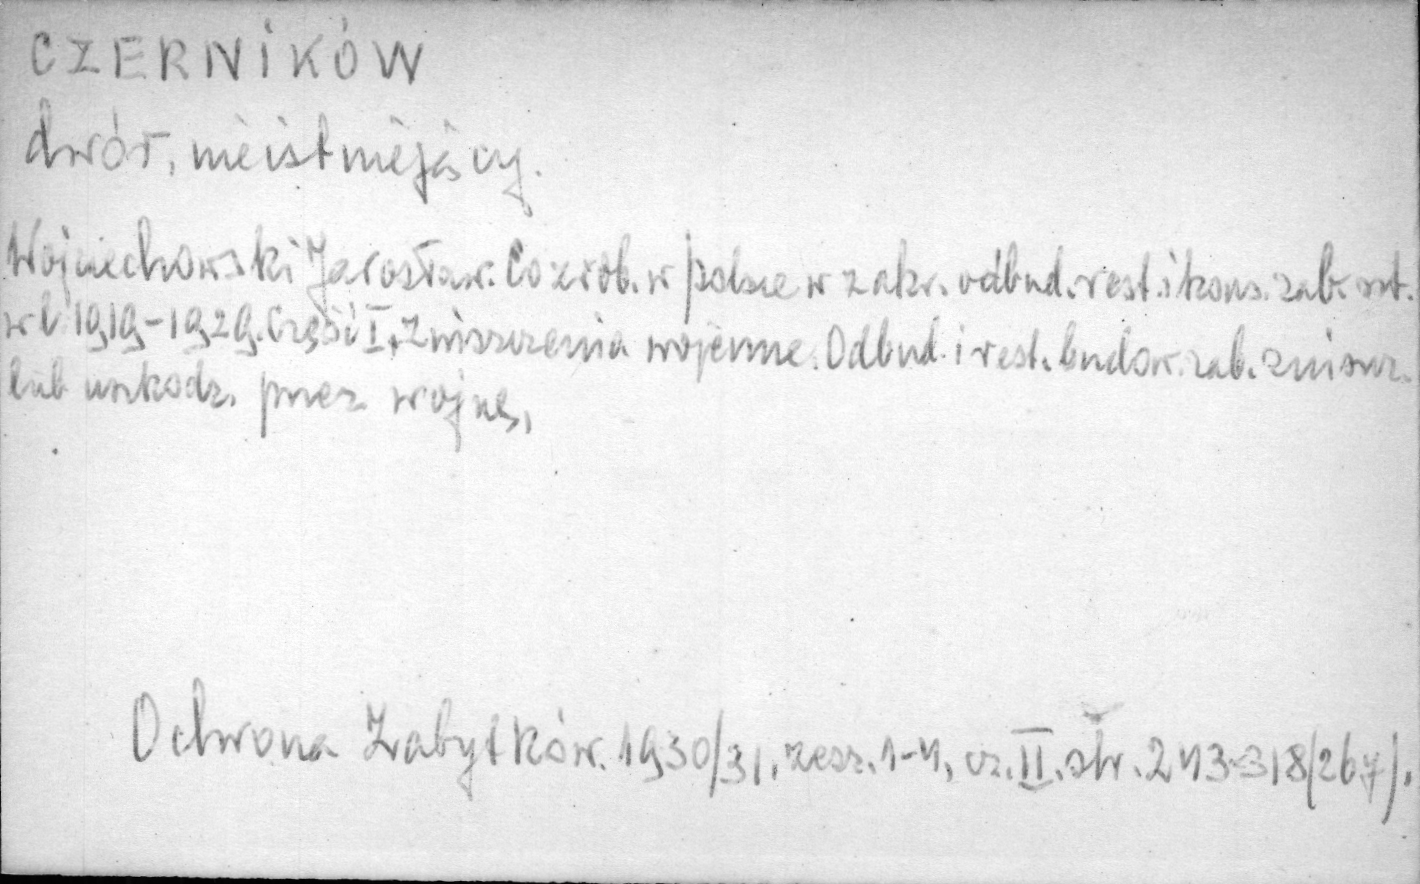 CZERNIKÓW
dwór, nieistniejący.
Wojciechowski Jarosław. Co zrob. w Polsce w zakr. odbud. rest. i kons. zab. szt.
w l. 1919-1929. Części I. Zniszczenia wojenne. Odbud. i rest. budow. zab. zniszcz.
lub uszkodz. przez wojnę,
Ochrona Zabytków. 1930/31, zesz. 1-4, cz. II. str. 243-318 (267).